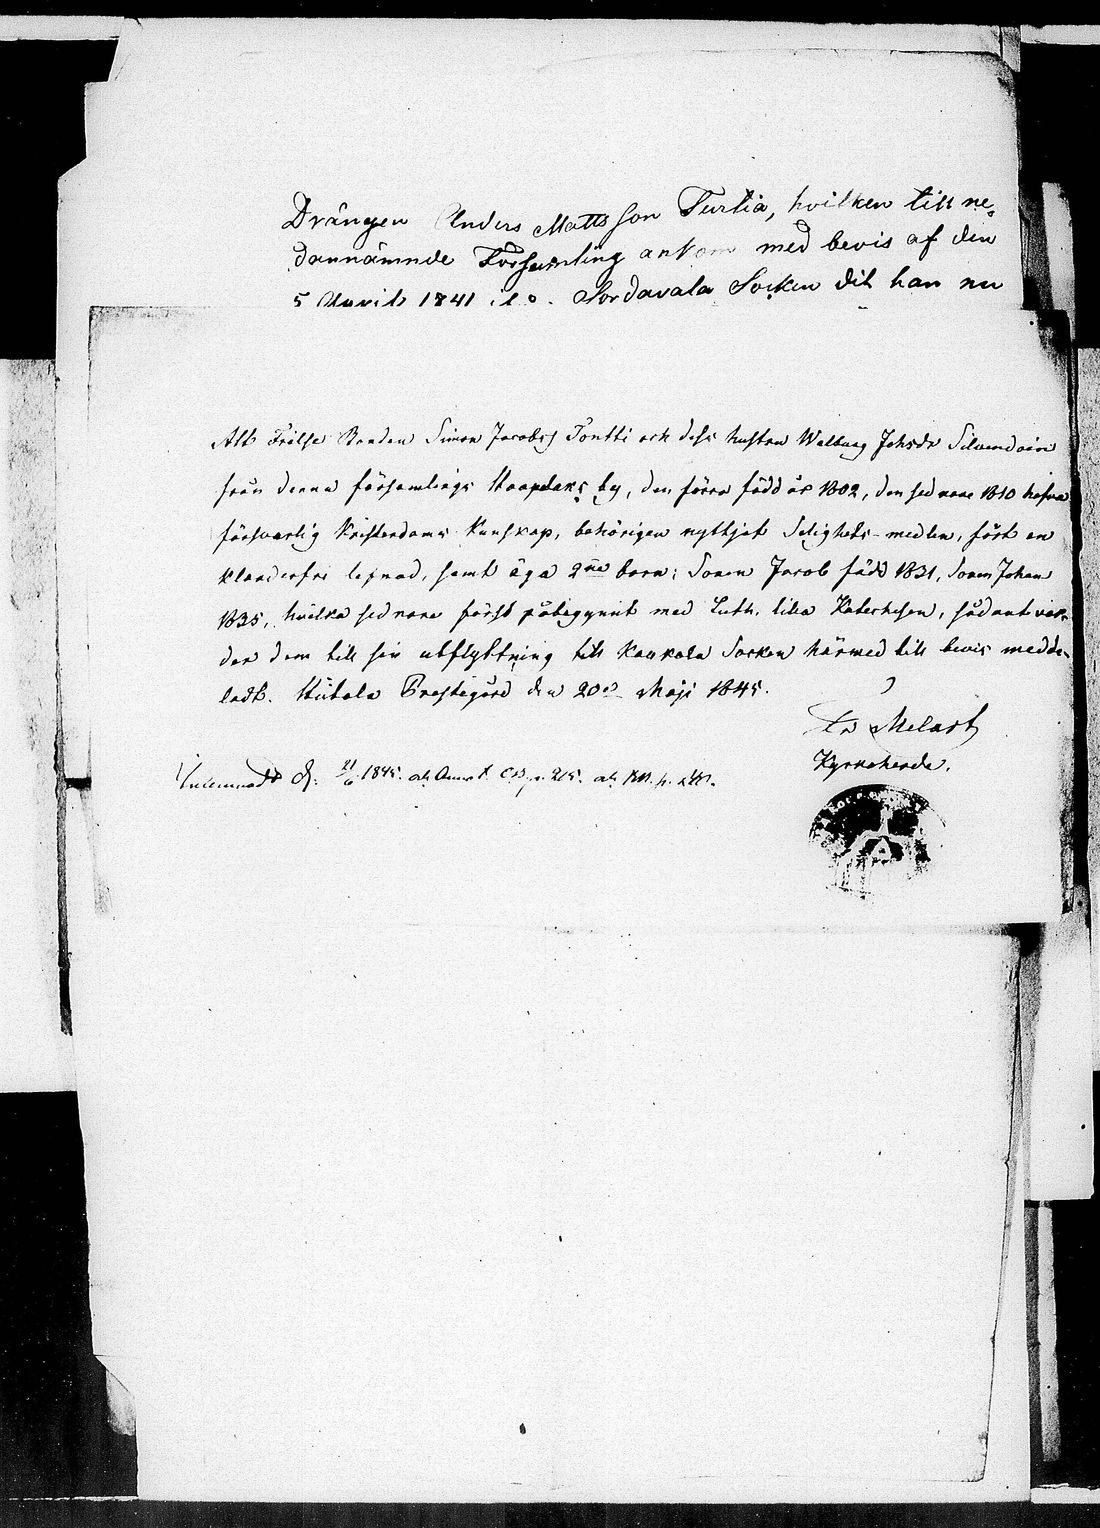 Drängen Anders Mattsson Turtia, hvilken till ne-
dannämnde Församling ankom med bevis af den
5 April 1841 i Sordavala Socken dit han nu
Att Frälse Bonden Simon Jacobss Tontti och dess hustru Walborg Johsdr Silvendoin
från denna församlings Haapalaks by, den förra född år 1802, den sednare 1810 hafva
försvarlig Kristendoms Kunskap, behörigen nyttjat Salighets-medlen, fört en
klanderfri lefnad, samt äga 2ne barn; Sonen Jacob född 1831, Sonen Johan
1835, hvilka sednare först påbegynnt med Luth. lilla Katechesen, sådant var-
der dem till sin utflyttning till Kaukola Socken härmed till bevis medde-
ladt. Hiitola Prestegård den 20de Maji 1845.
Melart
Kyrkoherde.
21/6 1845. p. 215.